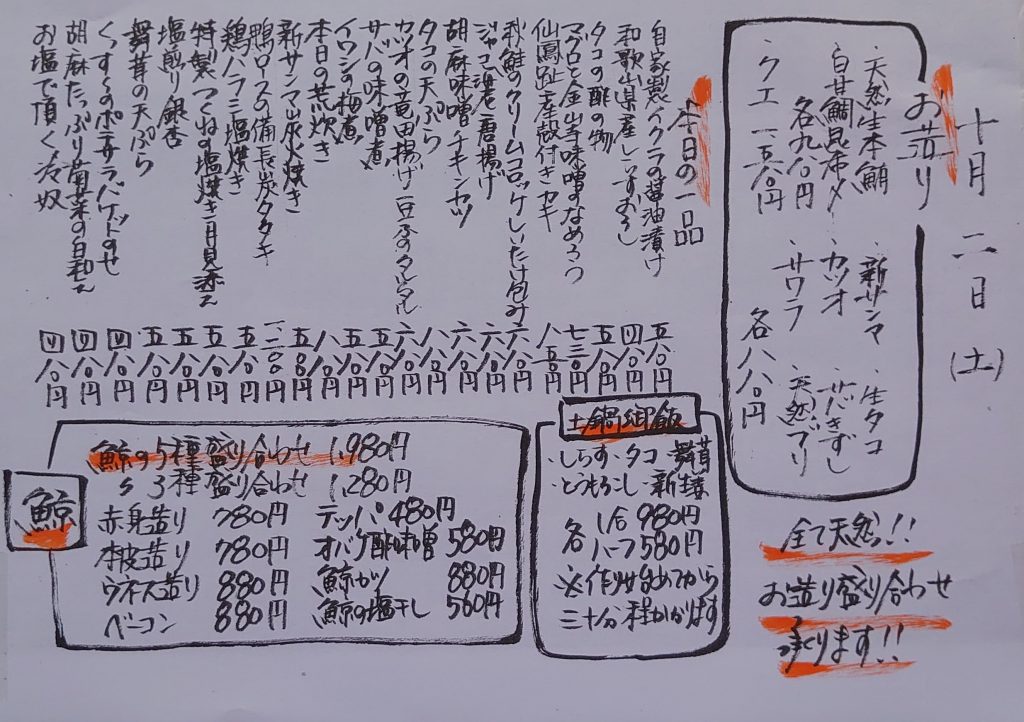 十月二日(土)
お造り
・天然生本鮪 ・新サンマ ・生タコ
・白甘鯛昆布〆 ・カツオ ・サバきずし
各九八〇円 ・サワラ ・天然ブリ
・クエ 一五八〇円 各八八〇円
全て天然!!
お造り盛り合わせ
承ります!!
本日の一品
自家製イクラの醤油漬け 五八〇円
和歌山県産しらすおろし 四八〇円
タコの酢の物 五八〇円
マグロと金山寺味噌のなめろう 七三〇円
仙鳳趾産殻付きカキ 八五〇円
秋鮭のクリームコロッケしいたけ包み 六八〇円
ジャコ海老唐揚げ 六八〇円
胡麻味噌チキンカツ 六八〇円
タコの天ぷら 八八〇円
カツオの竜田揚げ タルタル 六八〇円
サバの味噌煮 五八〇円
イワシの梅煮 五八〇円
本日の荒炊き 八八〇円
新サンマ炭火焼き
鴨ロースの備長炭タタキ
鶏ハラミ塩焼き 五八〇円
特製つくねの塩焼き月見添え 五八〇円
塩煎り銀杏 五八〇円
舞茸の天ぷら 五八〇円
くっすーのポテサラバケットのせ 四八〇円
胡麻たっぷり菊菜の白和え 四八〇円
お塩で頂く冷奴 四八〇円
土鍋御飯
・しらす・タコ・舞茸
・とうもろこし・新生姜
各 1合 980円
ハーフ 580円
※作り始めてから
三十分程かかります
鯨
鯨の5種盛り合わせ 1,980円
〃 3種盛り合わせ 1,280円
赤身造り 780円 テッパ 480円
本皮造り 780円 オバケ酢味噌 580円
ウネス造り 880円 鯨カツ 880円
ベーコン 880円 鯨の塩干し 580円